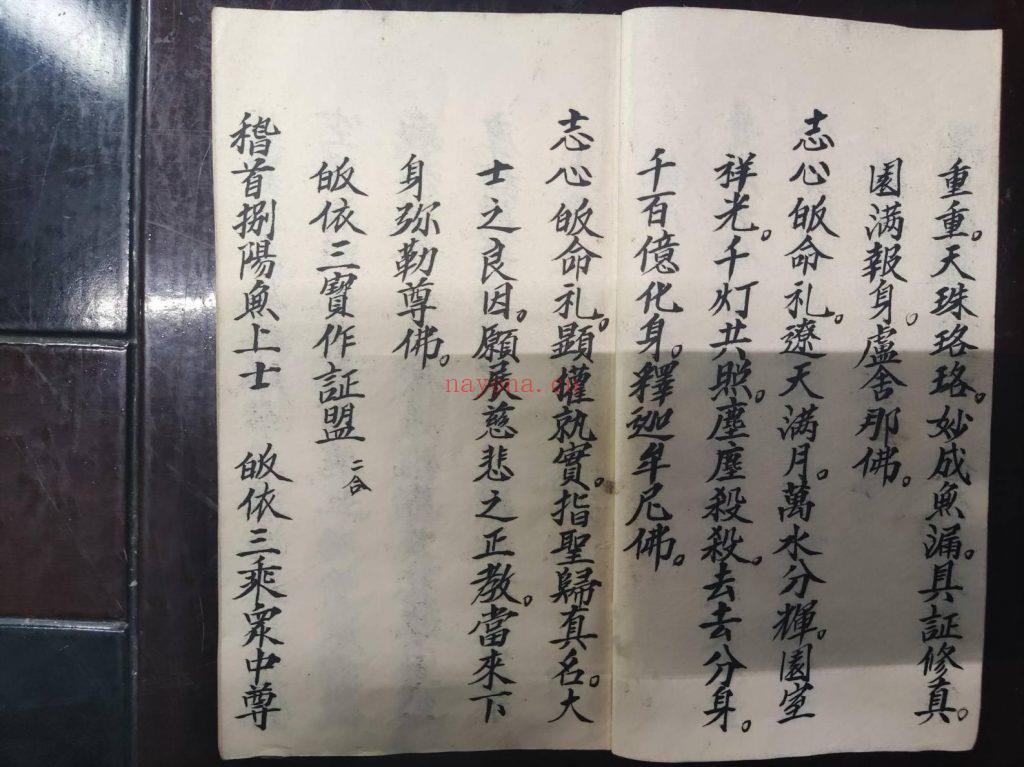 重重。天珠珞珞。妙成魚漏。具証修真。
園满報身。盧舍那佛。
志心皈命礼。遼天满月。萬水分輝。園室
祥光。千灯共照。塵塵殺殺。去去分身。
千百億化身。釋迦牟尼佛。
志心皈命礼。顕權執實。指聖歸真名。大
士之良因。願展慈悲之正教。當來下
身弥勒尊佛。
皈依三寶作証盟 二合
稽首捌陽魚上士 皈依三乘衆中尊
nayona.cn